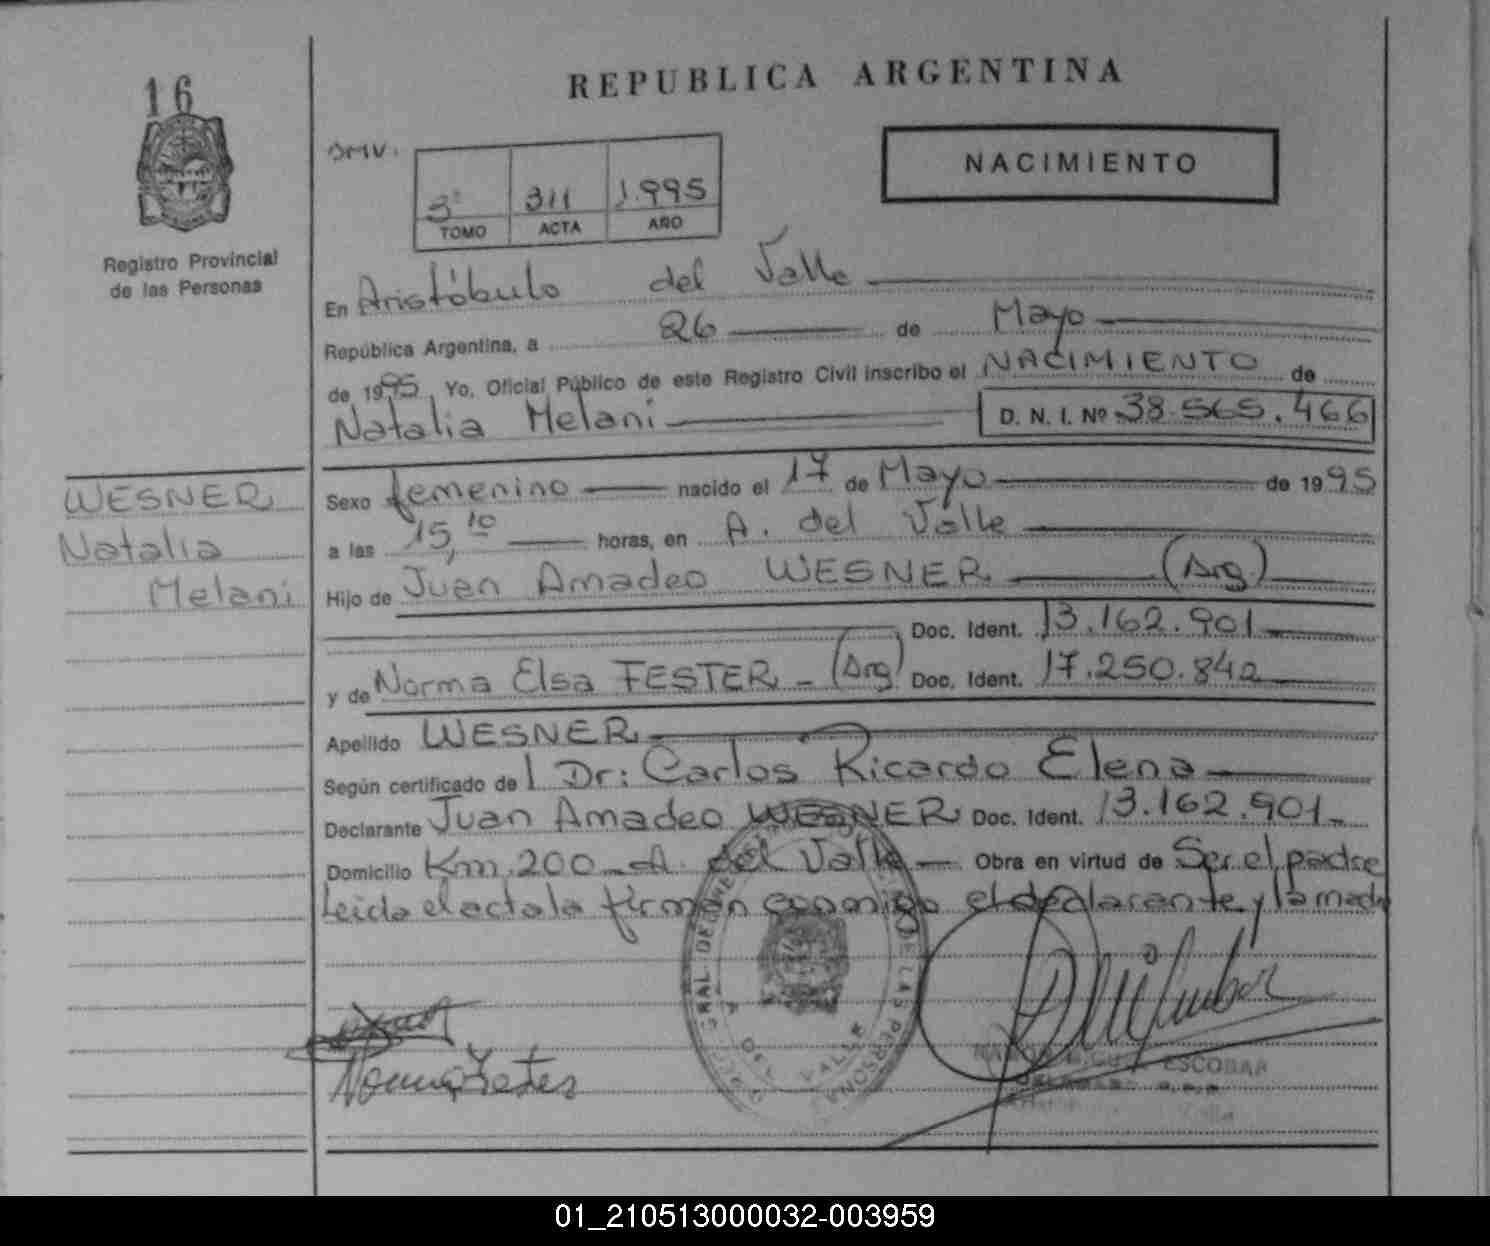 16
REPUBLICA ARGENTINA
NACIMIENTO
3º 311 1.995
TOMO ACTA AÑO
Registro Provincial
de las Personas
En Aristóbulo del Valle
República Argentina, a 26 de Mayo
de 1995. Yo, Oficial Público de este Registro Civil inscribo el NACIMIENTO de
Natalia Melani D. N. I. Nº 38.565.466
WESNER
Natalia
Melani
Sexo femenino nacido el 17 de Mayo de 1995
a las 15,10 horas, en A. del Valle
Hijo de Juan Amadeo WESNER (Arg.)
Doc. Ident. 13.162.901
y de Norma Elsa FESTER - (Arg) Doc. Ident. 17.250.842
Apellido WESNER
Según certificado del Dr: Carlos Ricardo Elena
Declarante Juan Amadeo WESNER Doc. Ident. 13.162.901
Domicilio Km. 200 - A. del Valle Obra en virtud de Ser el padre
Leída el acta la firman conmigo el declarante y la madre
A. DEL VALLE
ESCOBAR
01_210513000032-003959